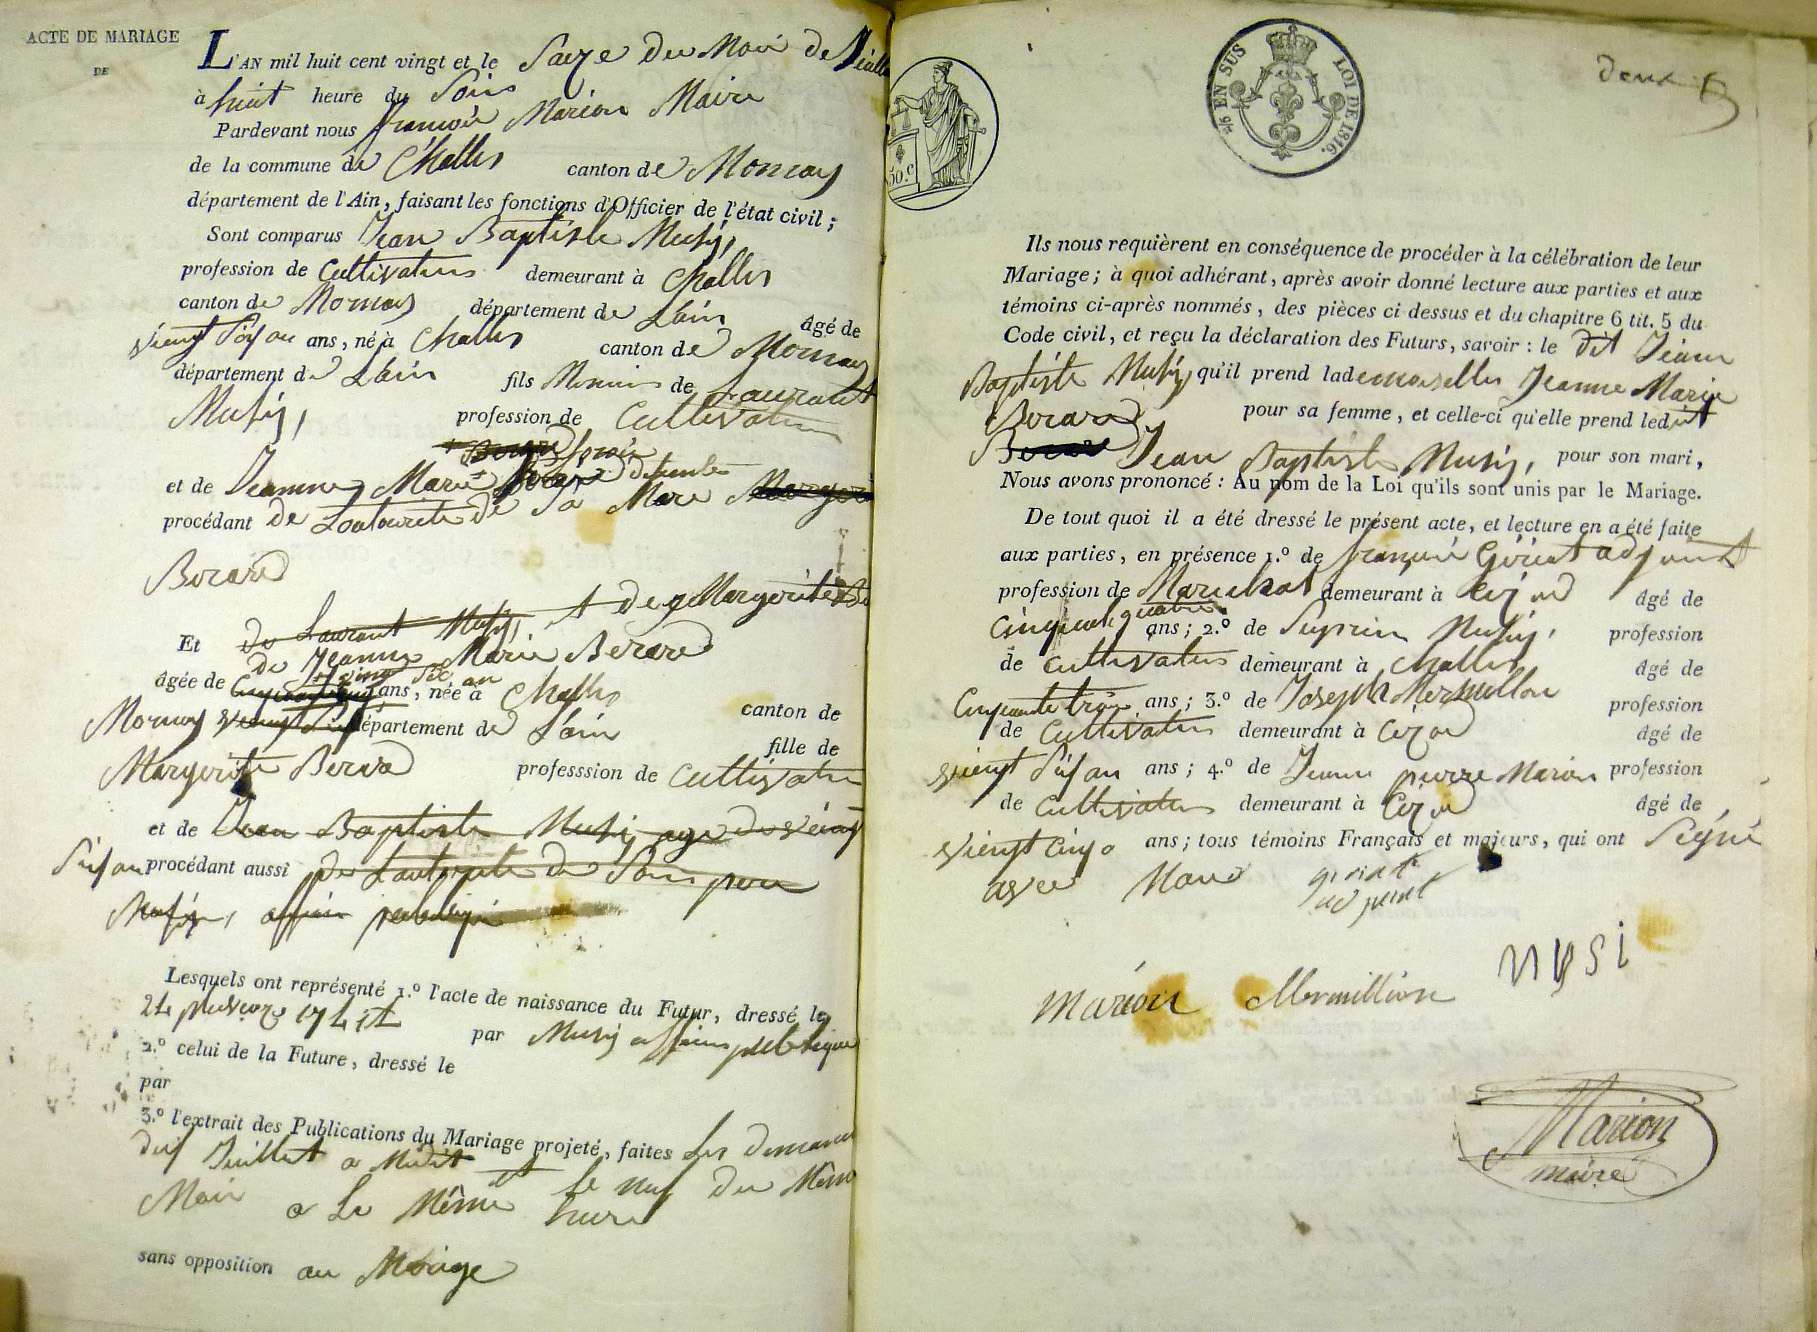 ACTE DE MARIAGE
DE
L'AN mil huit cent vingt et le Saize du Moi de Juille
à huit heure du Soir
Pardevant nous françois Marion Maire
de la commune de Challes canton de Mornay
département de l'Ain, faisant les fonctions d'Officier de l'état civil;
Sont comparus Jean Baptiste Musÿ,
profession de Cultivateur demeurant à Challes
canton de Mornay département de L'ain âgé de
viengt Sis an ans, né à Challes canton de Mornay
département de L'ain fils Mineur de Laurant
Musÿ, profession de Cultivateur
et de Jeanne Marie
procédant de Lautourite de Sa Mere
Berard
Et de Laurant Musÿ, et de Margerite Be
de Jeanne Marie Berard
âgée de ans, née à Challes
canton de
Mornay département de L'ain
fille de
Margerite Berard professsion de Cultivateur
et de Jean Baptiste Musÿ age de vieng
Sis an procédant aussi de Lautourite de Son pere
Musÿ, officier publique
Lesquels ont représenté 1.º l'acte de naissance du Futur, dressé le
par Musy officier publique
2.º celui de la Future, dressé le
par
3.º l'extrait des Publications du Mariage projeté, faites Les dimanc
Juillet a Midit et le neuf du Mêm
Moi a La Même heure
sans opposition au Mariage
46 EN SUS LOI DE 1816.
50.C
deux
Ils nous requièrent en conséquence de procéder à la célébration de leur
Mariage; à quoi adhérant, après avoir donné lecture aux parties et aux
témoins ci-après nommés, des pièces ci dessus et du chapitre 6 tit. 5 du
Code civil, et reçu la déclaration des Futurs, savoir : le dit Jean
Baptiste Musÿ qu'il prend lademoiselle Jeanne Marie
Berard pour sa femme, et celle-ci qu'elle prend ledit
Berard Jean Baptiste Musÿ, pour son mari,
Nous avons prononcé : Au nom de la Loi qu'ils sont unis par le Mariage.
De tout quoi il a été dressé le présent acte, et lecture en a été faite
aux parties, en présence 1.º de françois adjoint
profession de Marichal demeurant à Cezia âgé de
Cinquante quatre ans; 2.º de Musÿ, profession
de Cultivateur demeurant à Challes âgé de
Cinquante trois ans; 3.º de Joseph Mermillon profession
de Cultivateur demeurant à âgé de
viengt Sis an ans; 4.º de Jean pierre Marion profession
de Cultivateur demeurant à âgé de
viengt Cinq ans; tous témoins Français et majeurs, qui ont Signé
avec Nous
adjoint
Marion Mermillion MUSI
Marion
maire